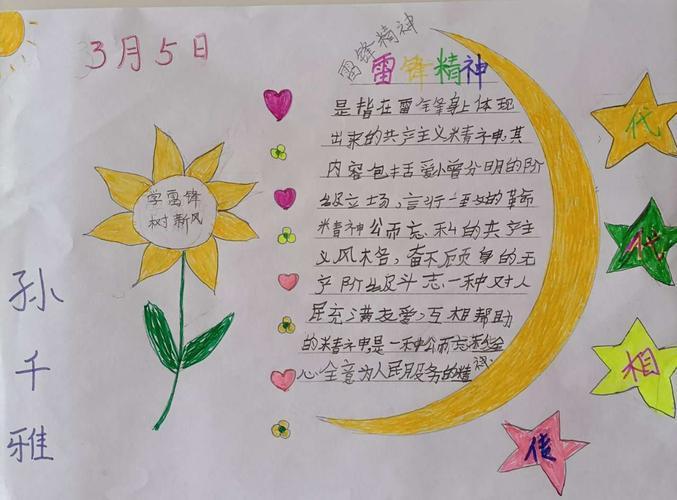 3月5日
雷锋精神
雷锋精神
是指在雷锋身上体现
出来的共产主义精神其
内容包括爱憎分明的阶
级立场,言行一致的革命
精神公而忘私的共产主
义风格,奋不顾身的无
产阶级斗志一种对人
民充满友爱,互相帮助
的精神是一种公而忘私全
心全意为人民服务的精神
学雷锋
树新风
孙
千
雅
代
代
相
传